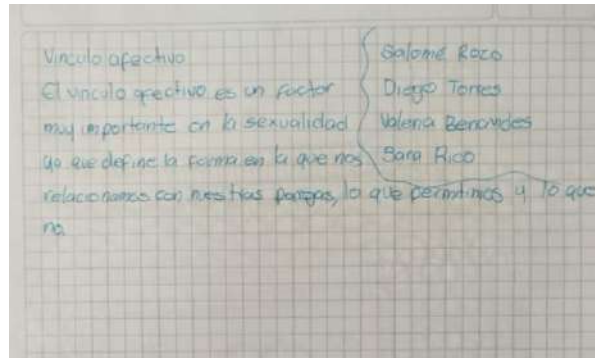 Vinculo afectivo
El vinculo afectivo es un factor
muy importante en la sexualidad
ya que define la forma en la que nos
relacionamos con nuestras parejas, lo que permitimos y lo que
no.
Salomé Rozo
Diego Torres
Valeria Benavides
Sara Rico